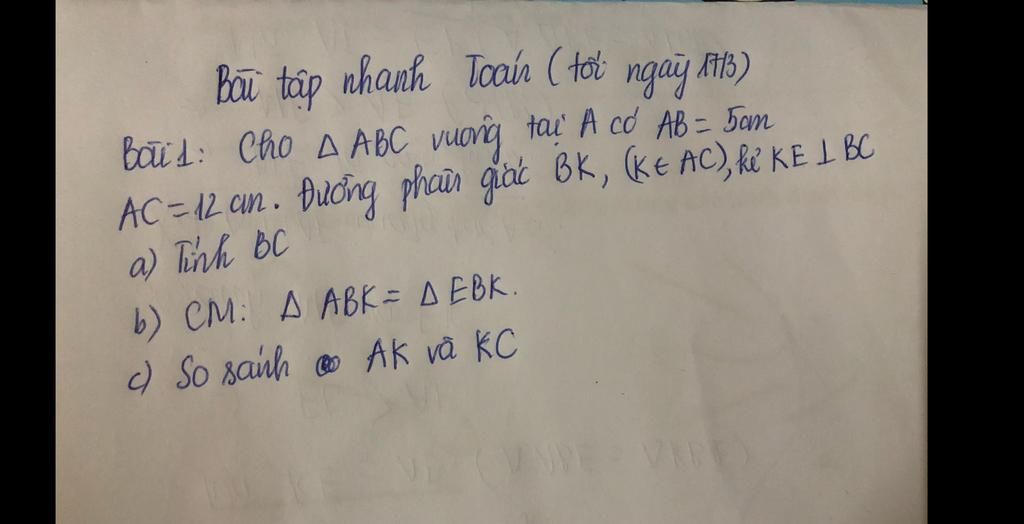 Bài tập nhanh Toán (tối ngày 17/3)
Bài 1: Cho Δ ABC vuông tại A có AB = 5cm
AC = 12 cm. Đường phân giác BK, (K ∈ AC), kẻ KE ⊥ BC
a) Tính BC
b) CM: Δ ABK = Δ EBK.
c) So sánh AK và KC